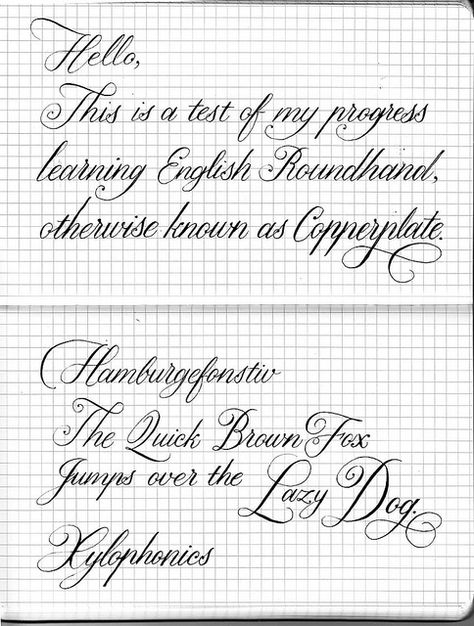 Hello,
This is a test of my progress
learning English Roundhand,
otherwise known as Copperplate.
Hamburgefonstiv
The Quick Brown Fox
Jumps over the Lazy Dog.
Xylophonics